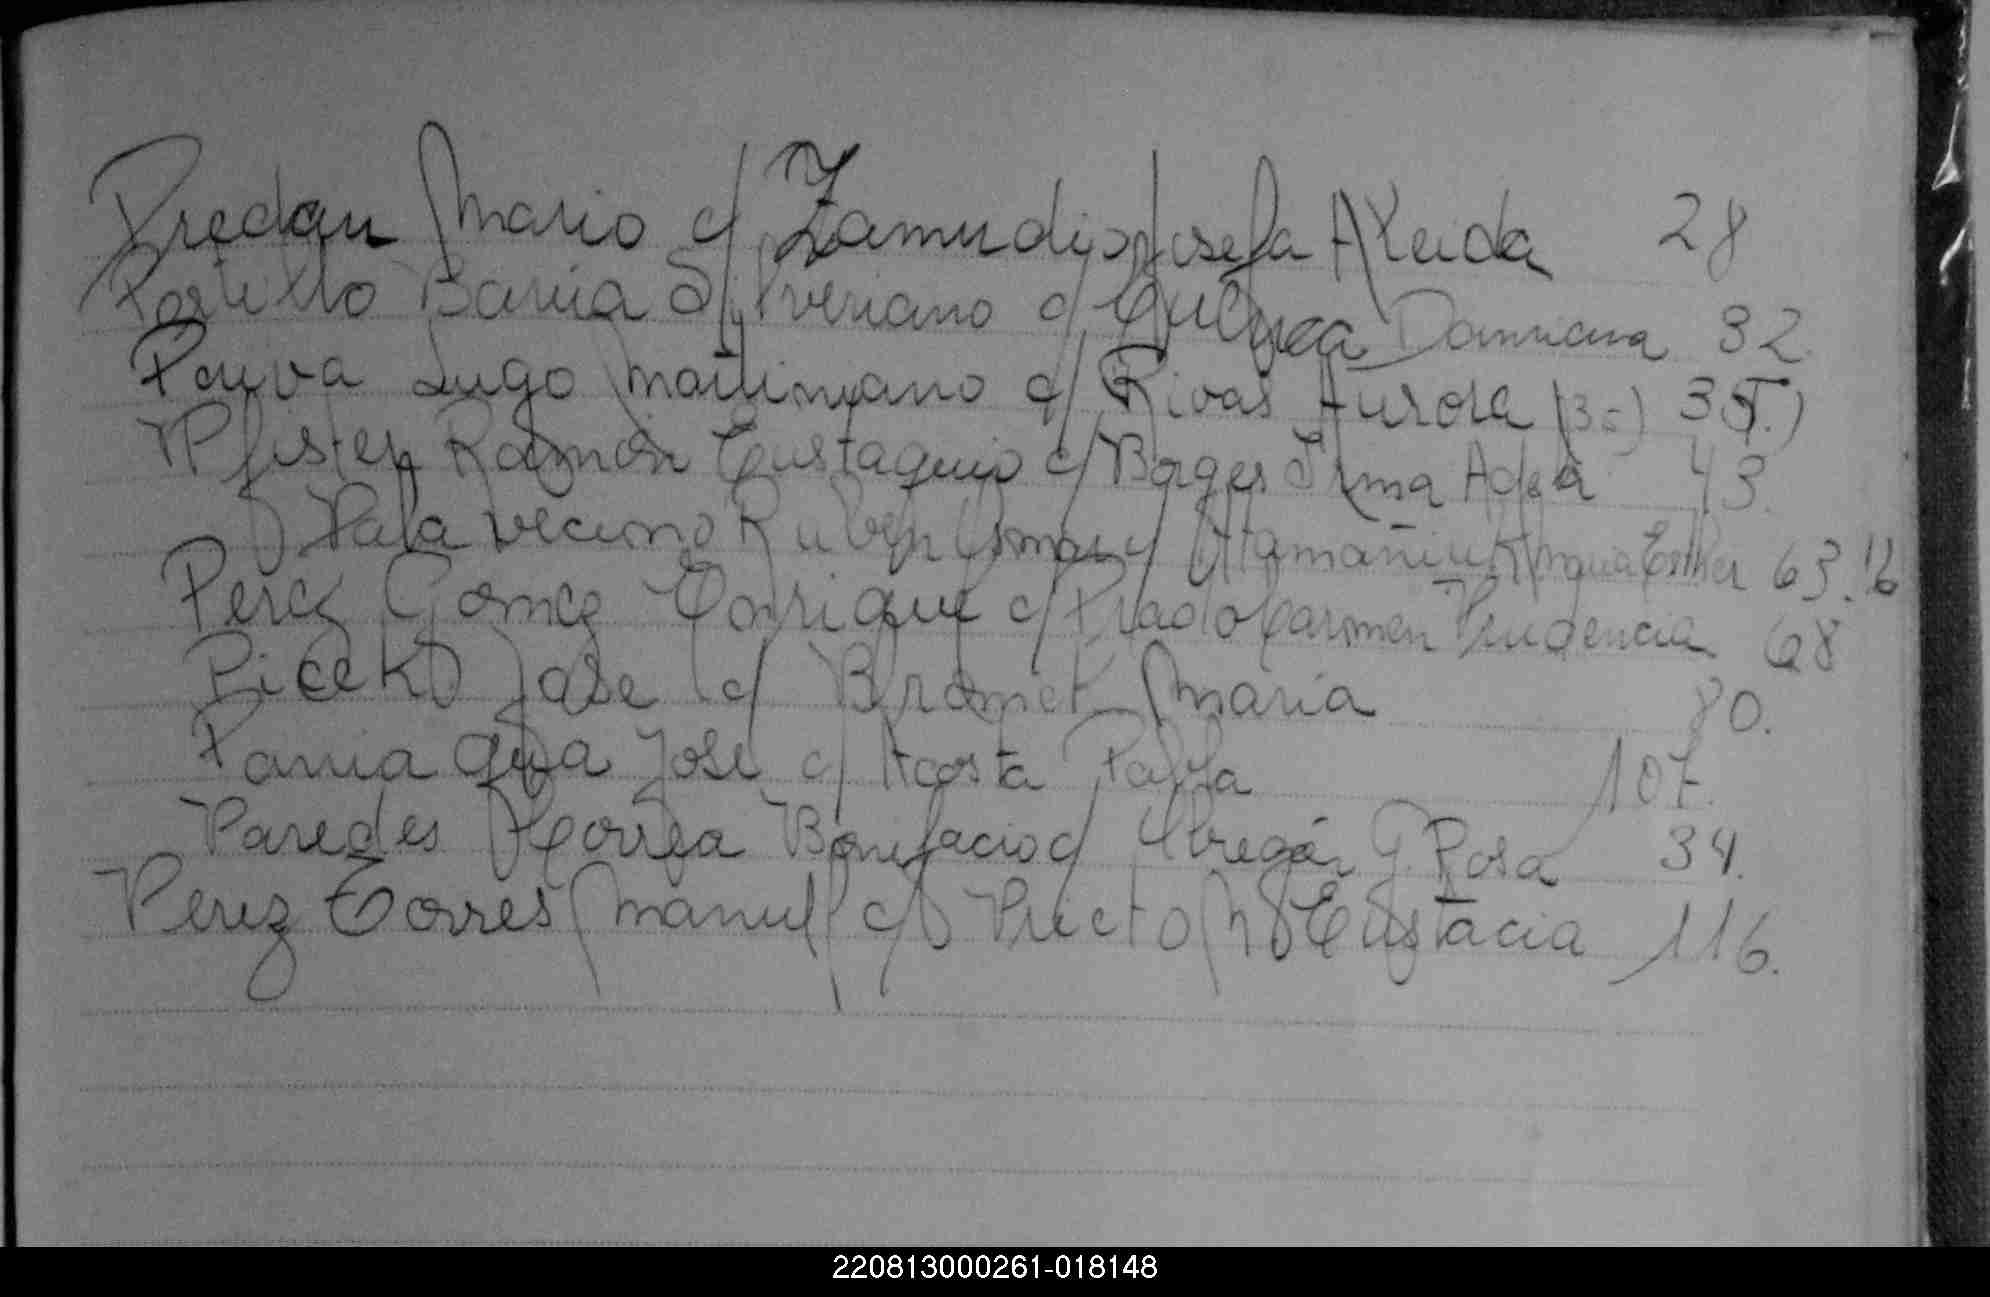 Predan Mario c/ Zamudio Josefa Aleida 28
Portillo Bania Silveriano c/ Damiana 32.
Paiva Lugo Maximiano c/ Rivas Aurora (3=) 35.)
Pfister Ramón Eustaquio c/ Borges Irma Adela 43.
Palavecino Ruben Omar c/ Atamañiuk Maria Esther 63.
Perez Gomez Enrique c/ Prado Carmen Prudencia 68
José c/ Maria 80.
Paniagua José c/ Acosta Paula 107.
Paredes Correa Bonifacio c/ Obregón G. Rosa 34.
Perez Torres Manuel c/ Prieto M Eustacia 116.
220813000261-018148